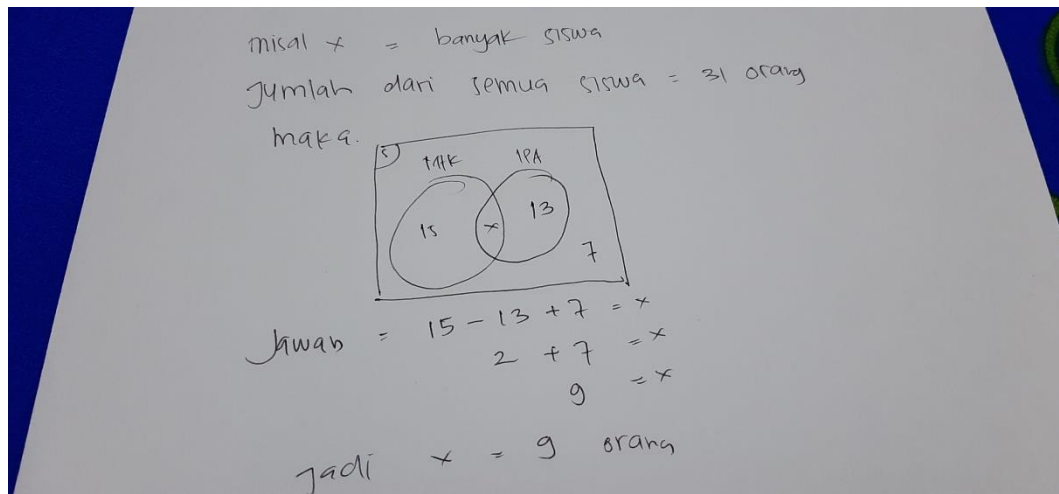 misal x = banyak siswa
Jumlah dari semua siswa = 31 orang
maka.
S
MTK IPA
15 x 13
7
Jawab = 15 - 13 + 7 = x
2 + 7 = x
9 = x
Jadi x = 9 orang